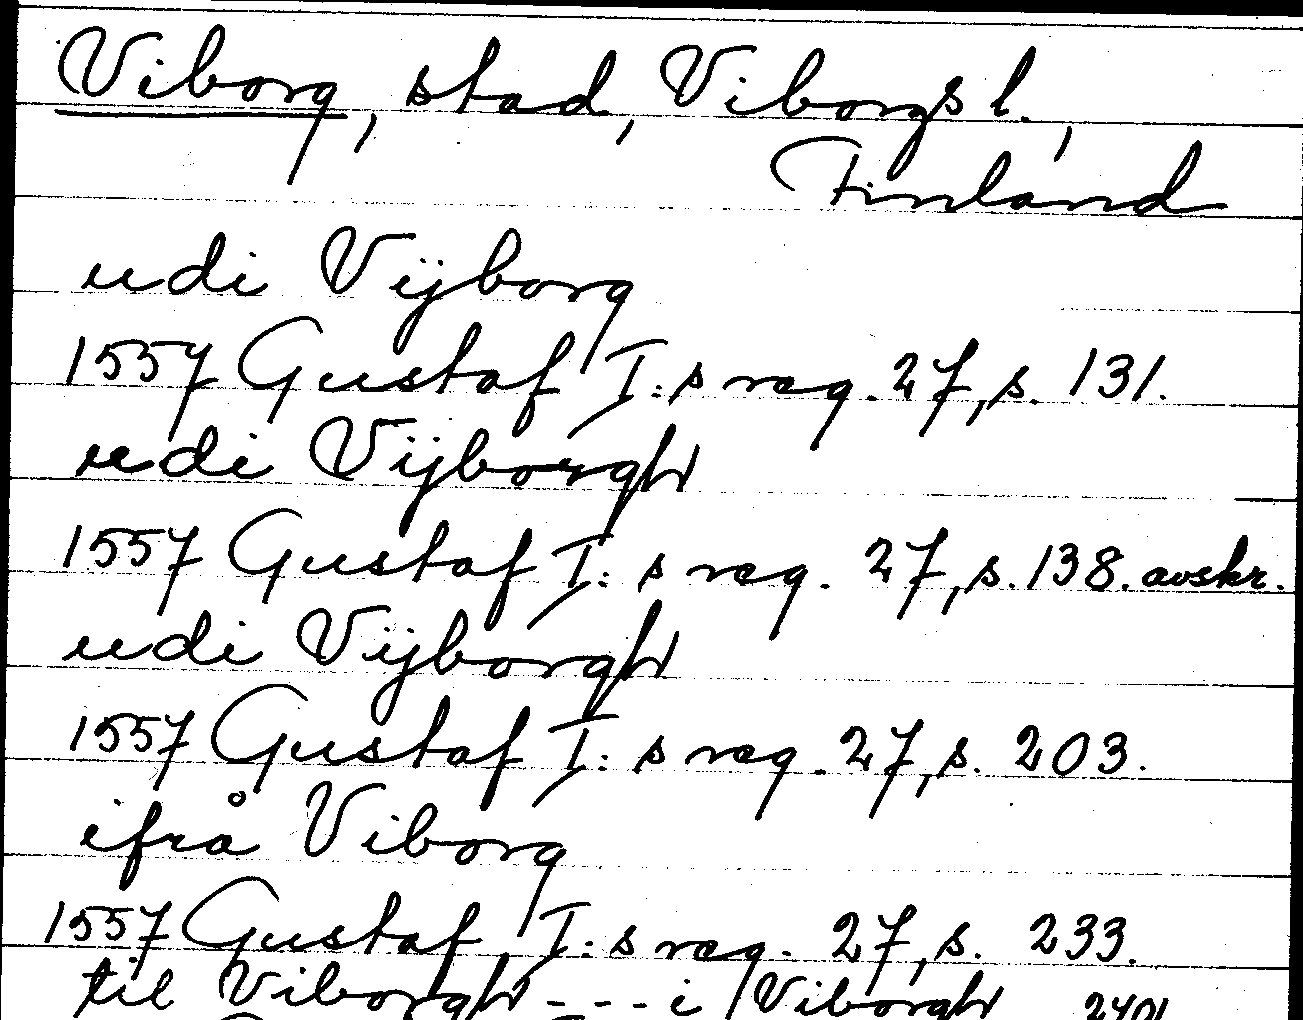 Viborg, stad, Viborgs l.,
Finland
udi Vijborg
1557 Gustaf I:s reg. 27, s. 131.
udi Vijborgh
1557 Gustaf I:s reg. 27, s. 138. avskr.
udi Vijborgh
1557 Gustaf I:s reg. 27, s. 203.
ifrå Viborg
1557 Gustaf I:s reg. 27, s. 233.
til Viborgh - - - i Viborgh